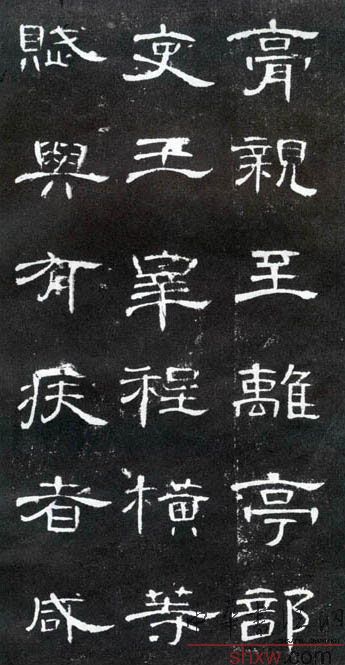 膏親至離亭部
吏王宰程橫等
賦與有疾者咸
shxw.com